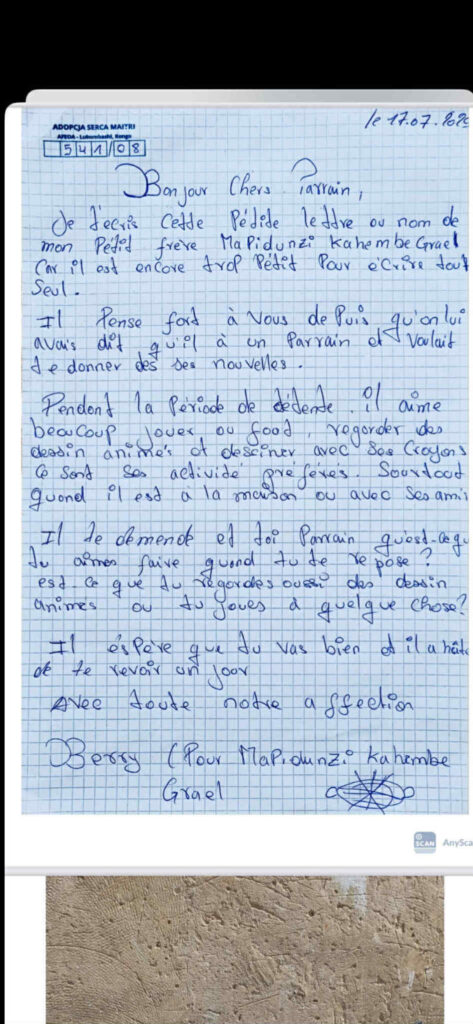 le 17.07.202
ADOPCJA SERCA MAITRI
APEDA - Lubumbashi, Kongo
541/08
Bonjour Chers Parrain,
Je t'ecris Cette Pétide lettre ou nom de
mon Pétit frère MaPidunzi Kahembe Grael
Car il est encore trop Pétit Pour ecrire tout
Seul.
Il Pense fort à Vous de Puis qu'on lui
avais dit qu'il à un Parrain et Voulait
te donner des ses nouvelles.
Pendent la Période de détente. il aime
beaucoup jouer ou foot, regorder des
dessin animés et desciner avec Ses Crayons
Ce sont Ses activité préférés. Sourtout
quond il est a la maison ou avec Ses ami
Il te demende et toi Parrain qu'ést-ce qu
tu aimes faire quond tu te repose?
est-ce que tu régordes oussi des dessin
animes ou tu joues à quelque chose?
Il éspère que tu vas bien et il a hât
de te revoir un joor
Avec toute notre affection
Berry (Pour MaPidunzi Kahembe
Grael
SCAN
AnySca